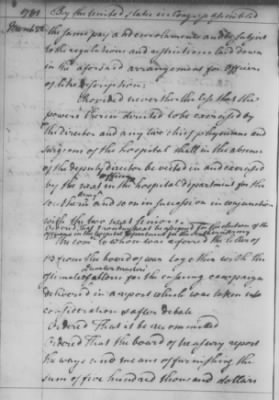 1781 By the United States in Congress assembled
the same pay and emoluments and be subject
to the regulations and restrictions laid down
in the aforesaid arrangement for officers
of like description;
Provided nevertheless that the
powers therein directed to be exercised by
the director and any two chief physicians and
surgeons of the hospital shall in the absence
of the deputy director be vested in and exercised
officer
by the next in the hospital department for the
southern army and so on in succession in conjunction
with the two next seniors
Ordered That
The com to whom was referred the letter of
13 from the board of war together with the
quarter masters
estimate of allow for the ensuing campaign
delivered in a report which was taken into
consideration & after debate
Ordered That it be recommitted
Ordered That the board of treasury report
the ways and means of furnishing the
sum of five hundred thousand dollars